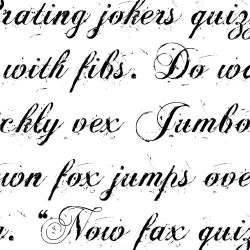 rating jokers quiz
with fibs. Do wa
ckly vex Jumbo
wn fox jumps ove
. "Now fax quiz